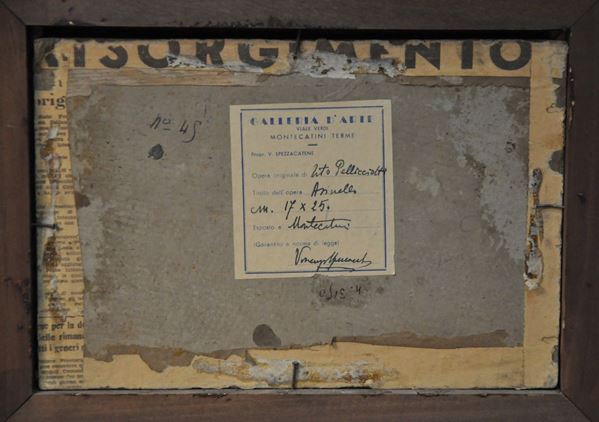 RISORGIMENTO
orig
nº 45
GALLERIA D'ARTE
VIALE VERDI
MONTECATINI TERME
Propr. V. SPEZZACATENE
Opera originale di Vito Pellicciotti
Titolo dell'opera Asinello
cm. 17 x 25.
Esposto a Montecatini
(Garantito a norma di legge)
e per la d
delle rimane
ti i generi